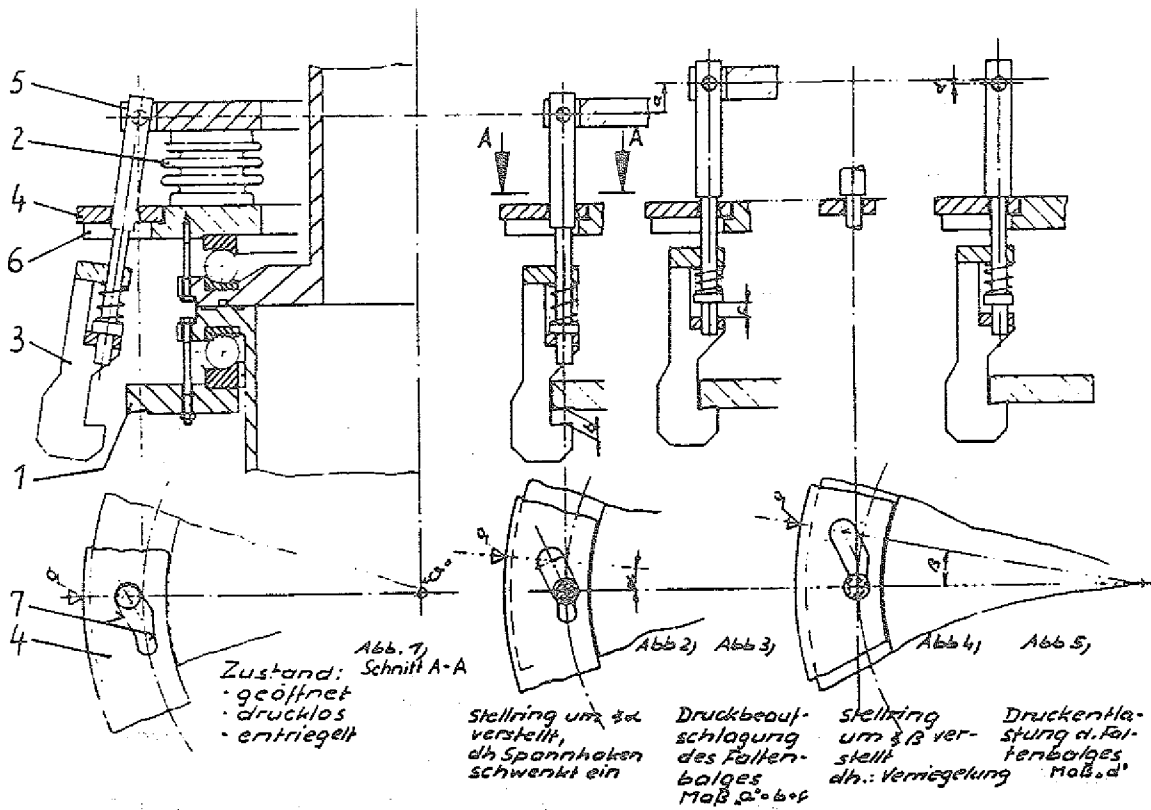 5
2
4
6
3
1
A A
a
a
c
b
7
4
α
β
Abb. 1,
Schnitt A-A
Zustand:
· geöffnet
· drucklos
· entriegelt
Abb 2,
Stellring um ∢α
verstellt,
dh Spannhaken
schwenkt ein
Abb 3,
Druckbeauf-
schlagung
des Falten-
balges
Maß „a“=b+c
Abb 4,
Stellring
um ∢β ver-
stellt
dh.: Verriegelung
Abb 5,
Druckentla-
stung d. Fal-
tenbalges
Maß „d“